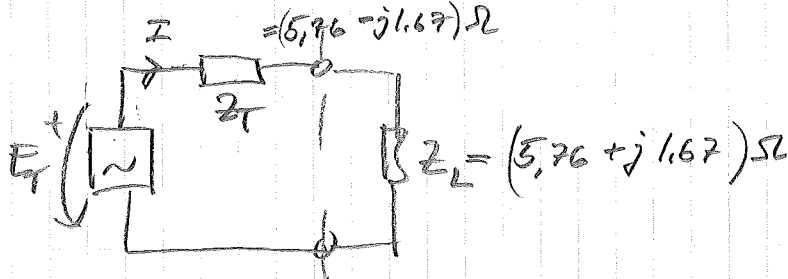 I =(5,76 - j1.67) Ω
Z_T
+
E_T ~ Z_L = (5,76 + j1.67) Ω